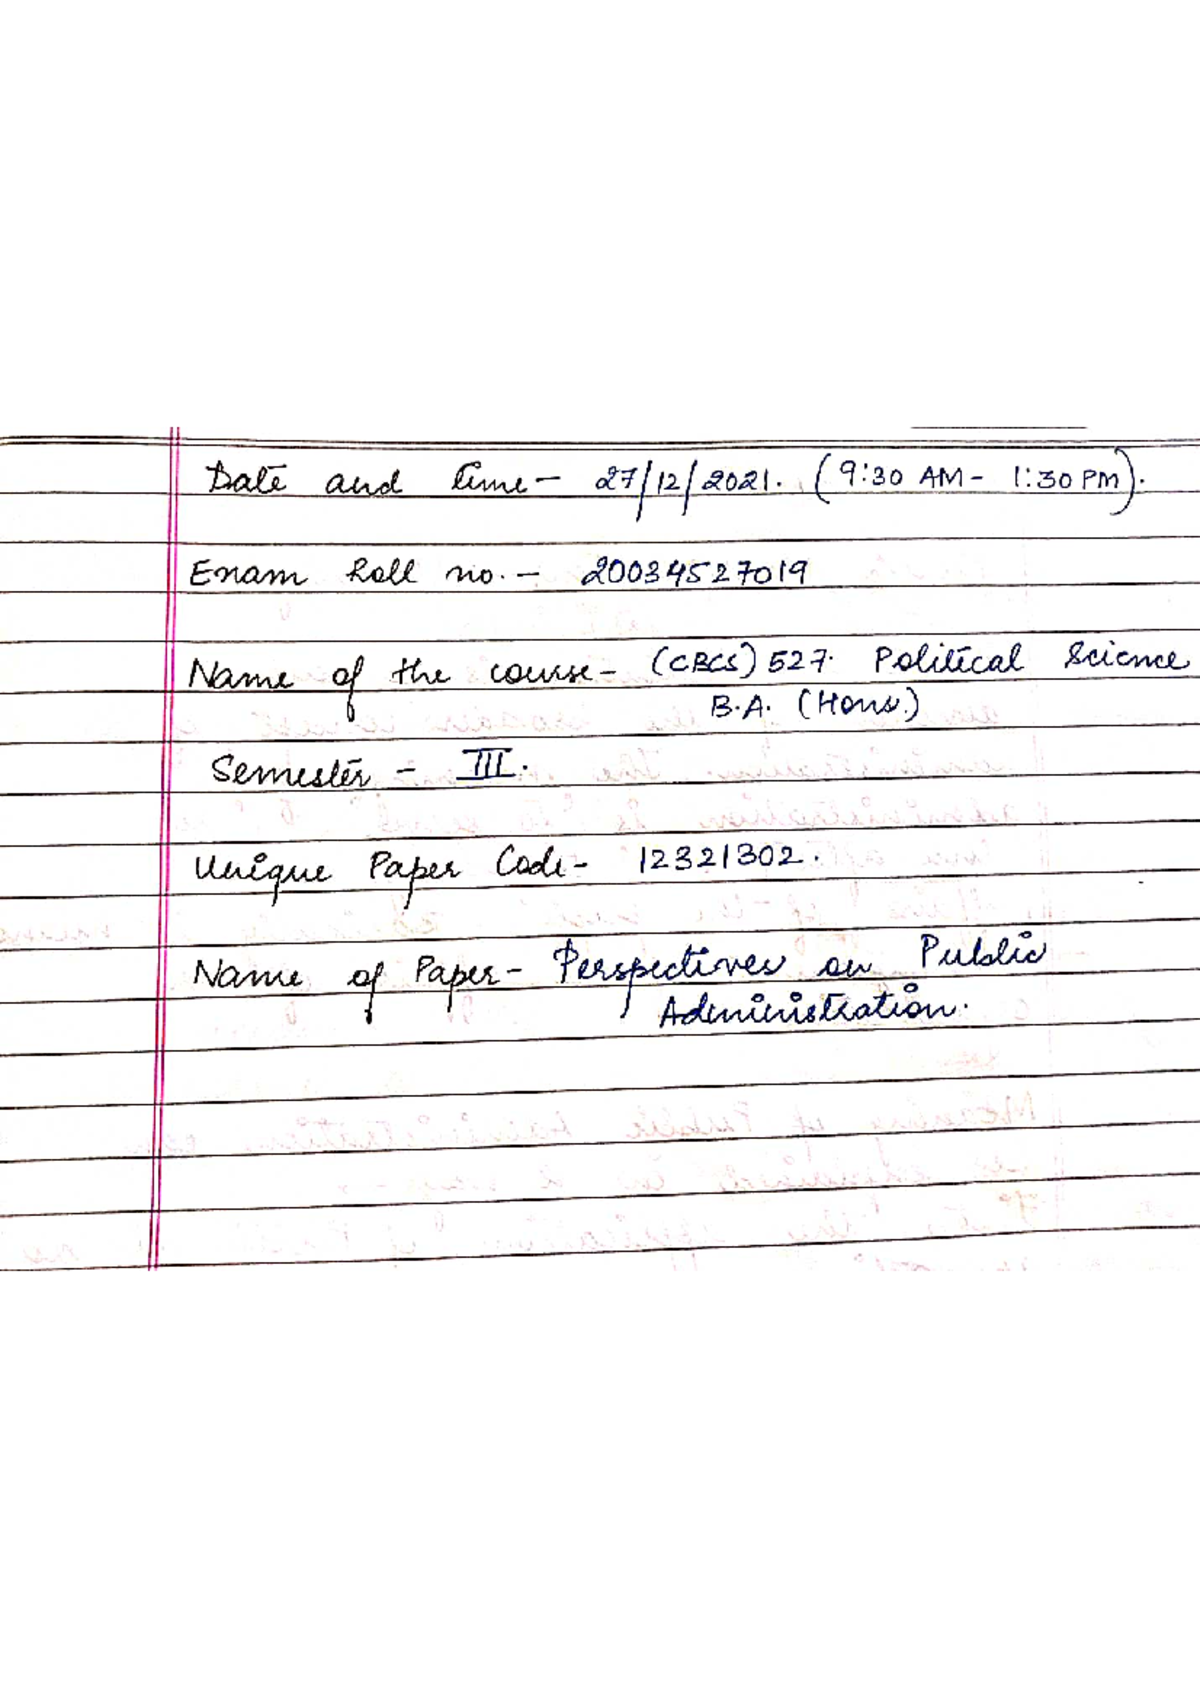 Date and time- 27/12/2021. (9:30 AM - 1:30 PM).
Exam Roll no. - 20034527019
Name of the course- (CBCS) 527. Political Science
B.A. (Hons.)
Semester - III.
Unique Paper Code- 12321302.
Name of Paper- Perspectives on Public
Administration.